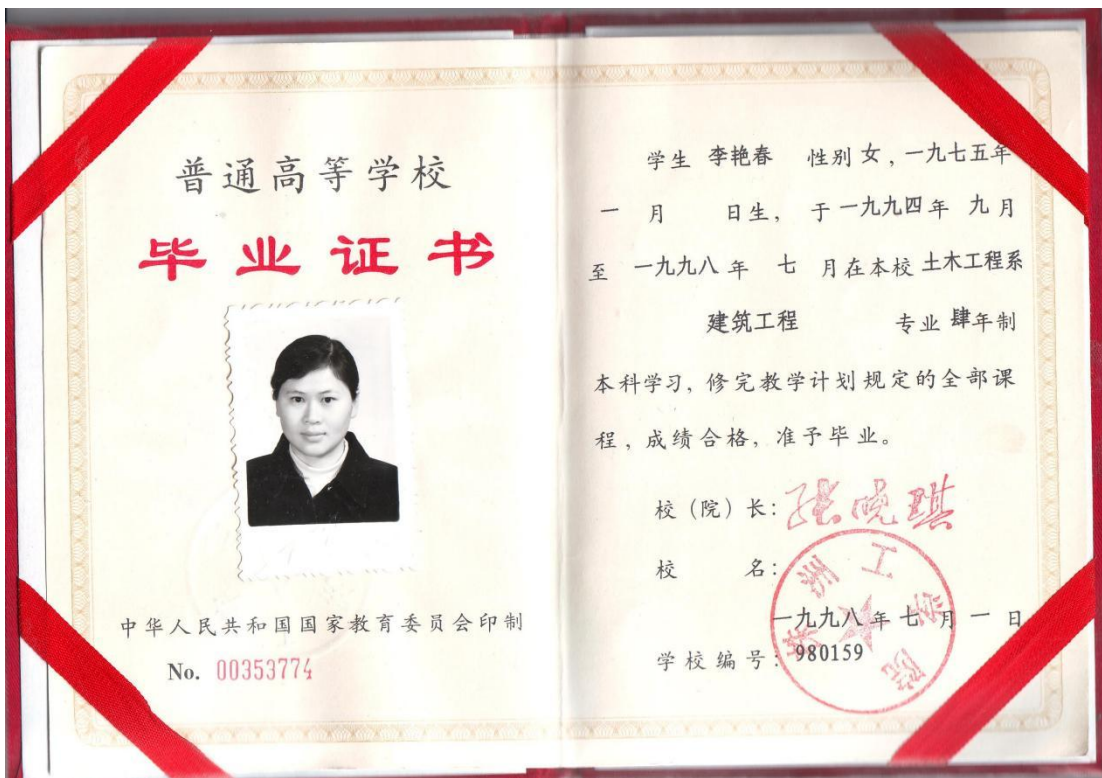 普通高等学校
毕业证书
中华人民共和国国家教育委员会印制
No. 00353774
学生 李艳春 性别 女，一九七五年
一 月 日生，于 一九九四 年 九 月
至 一九九八 年 七 月在本校 土木工程系
建筑工程 专业 肆年制
本科学习，修完教学计划规定的全部课
程，成绩合格，准予毕业。
校（院）长：张晓琪
校 名：
株洲工学院
一九九八 年 七 月 一 日
学校编号：980159